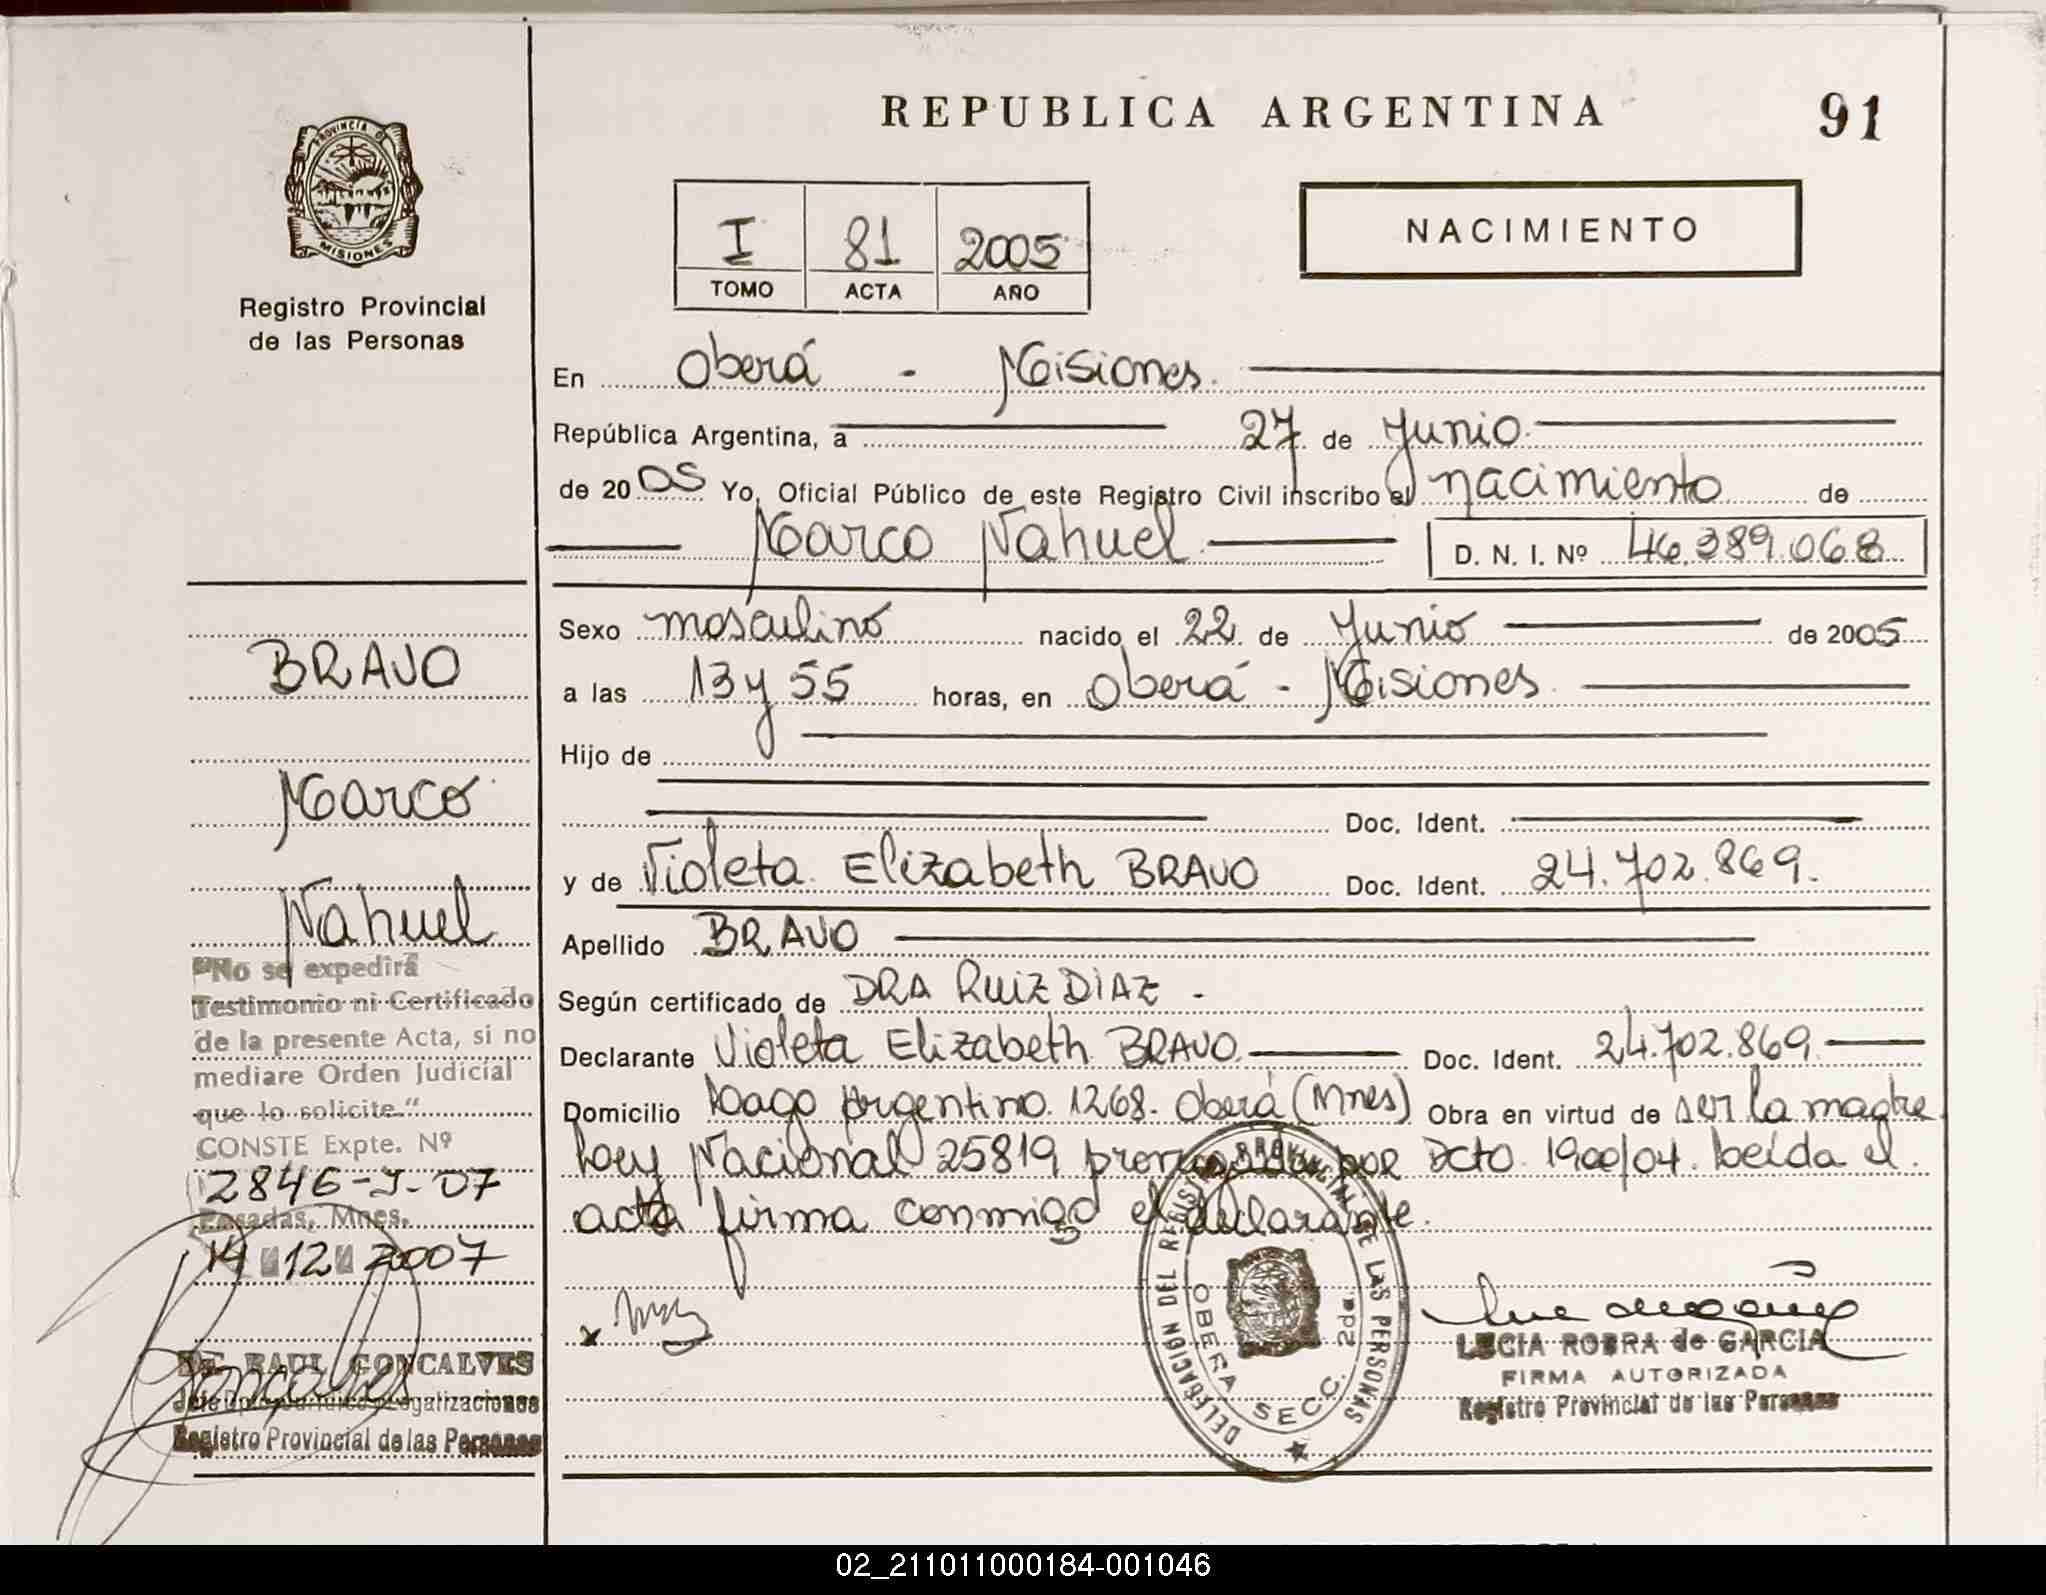 REPUBLICA ARGENTINA
91
PROVINCIA DE
MISIONES
Registro Provincial
de las Personas
I 81 2005
TOMO ACTA AÑO
NACIMIENTO
En Oberá - Misiones.
República Argentina, a 27 de Junio
de 2005 Yo, Oficial Público de este Registro Civil inscribo el nacimiento de
Marco Nahuel D. N. I. Nº 46.389.068
Sexo masculino nacido el 22 de Junio de 2005
a las 13 y 55 horas, en Oberá - Misiones.
Hijo de
Doc. Ident.
y de Violeta Elizabeth BRAVO Doc. Ident. 24.702.869.
Apellido BRAVO
Según certificado de DRA RUIZ DIAZ -
Declarante Violeta Elizabeth BRAVO Doc. Ident. 24.702.869
Domicilio Lago Argentino. 1268. Oberá (Mnes) Obra en virtud de ser la madre
Ley Nacional 25819 por Dcto. 1900/04. Leída el
acta firma conmigo el declarante.
DELEGACIÓN DEL REGISTRO PROVINCIAL DE LAS PERSONAS
OBERA SECC. 2da.
LUCIA ROBRA de GARCIA
FIRMA AUTORIZADA
Registro Provincial de las Personas
BRAVO
Marco
Nahuel
"No se expedirá
Testimonio ni Certificado
de la presente Acta, si no
mediare Orden Judicial
que lo solicite."
CONSTE Expte. Nº
2846-J-07
Posadas, Mnes.
14 12 2007
RAUL GONCALVES
Registro Provincial de las Personas
02_211011000184-001046